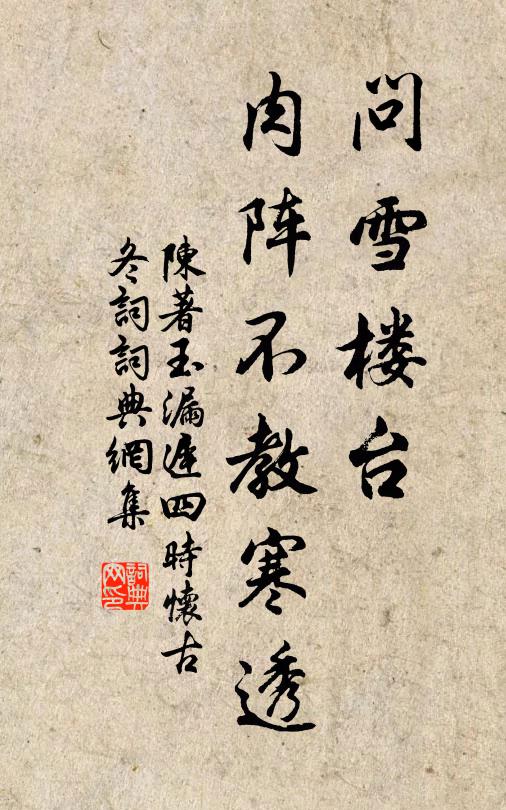 问雪楼台
肉阵不教寒透
陳著玉漏遲四時懷古
冬詞詞典網集
詞典
网印